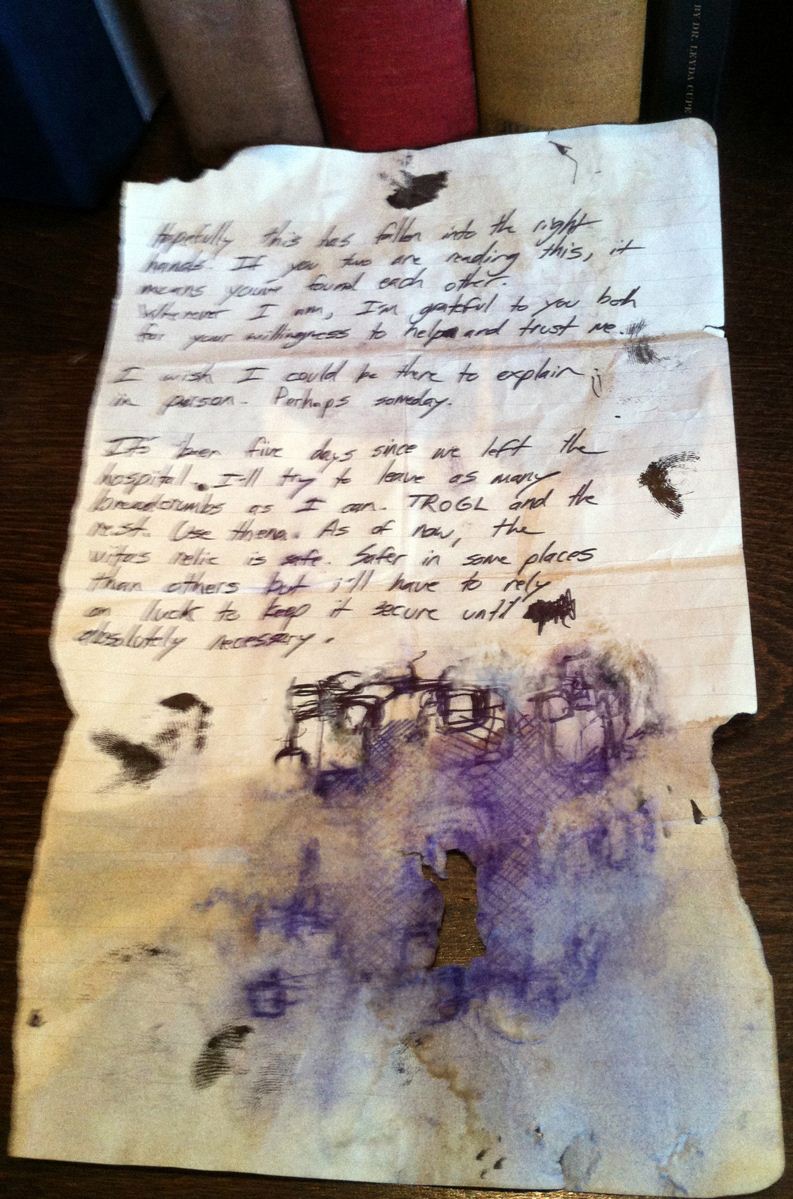 BY DR. LEYDA CUPE
Hopefully this has fallen into the right
hands. If you two are reading this, it
means you've found each other.
Wherever I am, I'm grateful to you both
for your willingness to help and trust me.
I wish I could be there to explain
in person. Perhaps someday.
It's been five days since we left the
hospital. I'll try to leave as many
breadcrumbs as I can. TROGL and the
rest. Use them. As of now, the
relic is safe. Safer in some places
than others but i'll have to rely
on luck to keep it secure until
absolutely necessary.